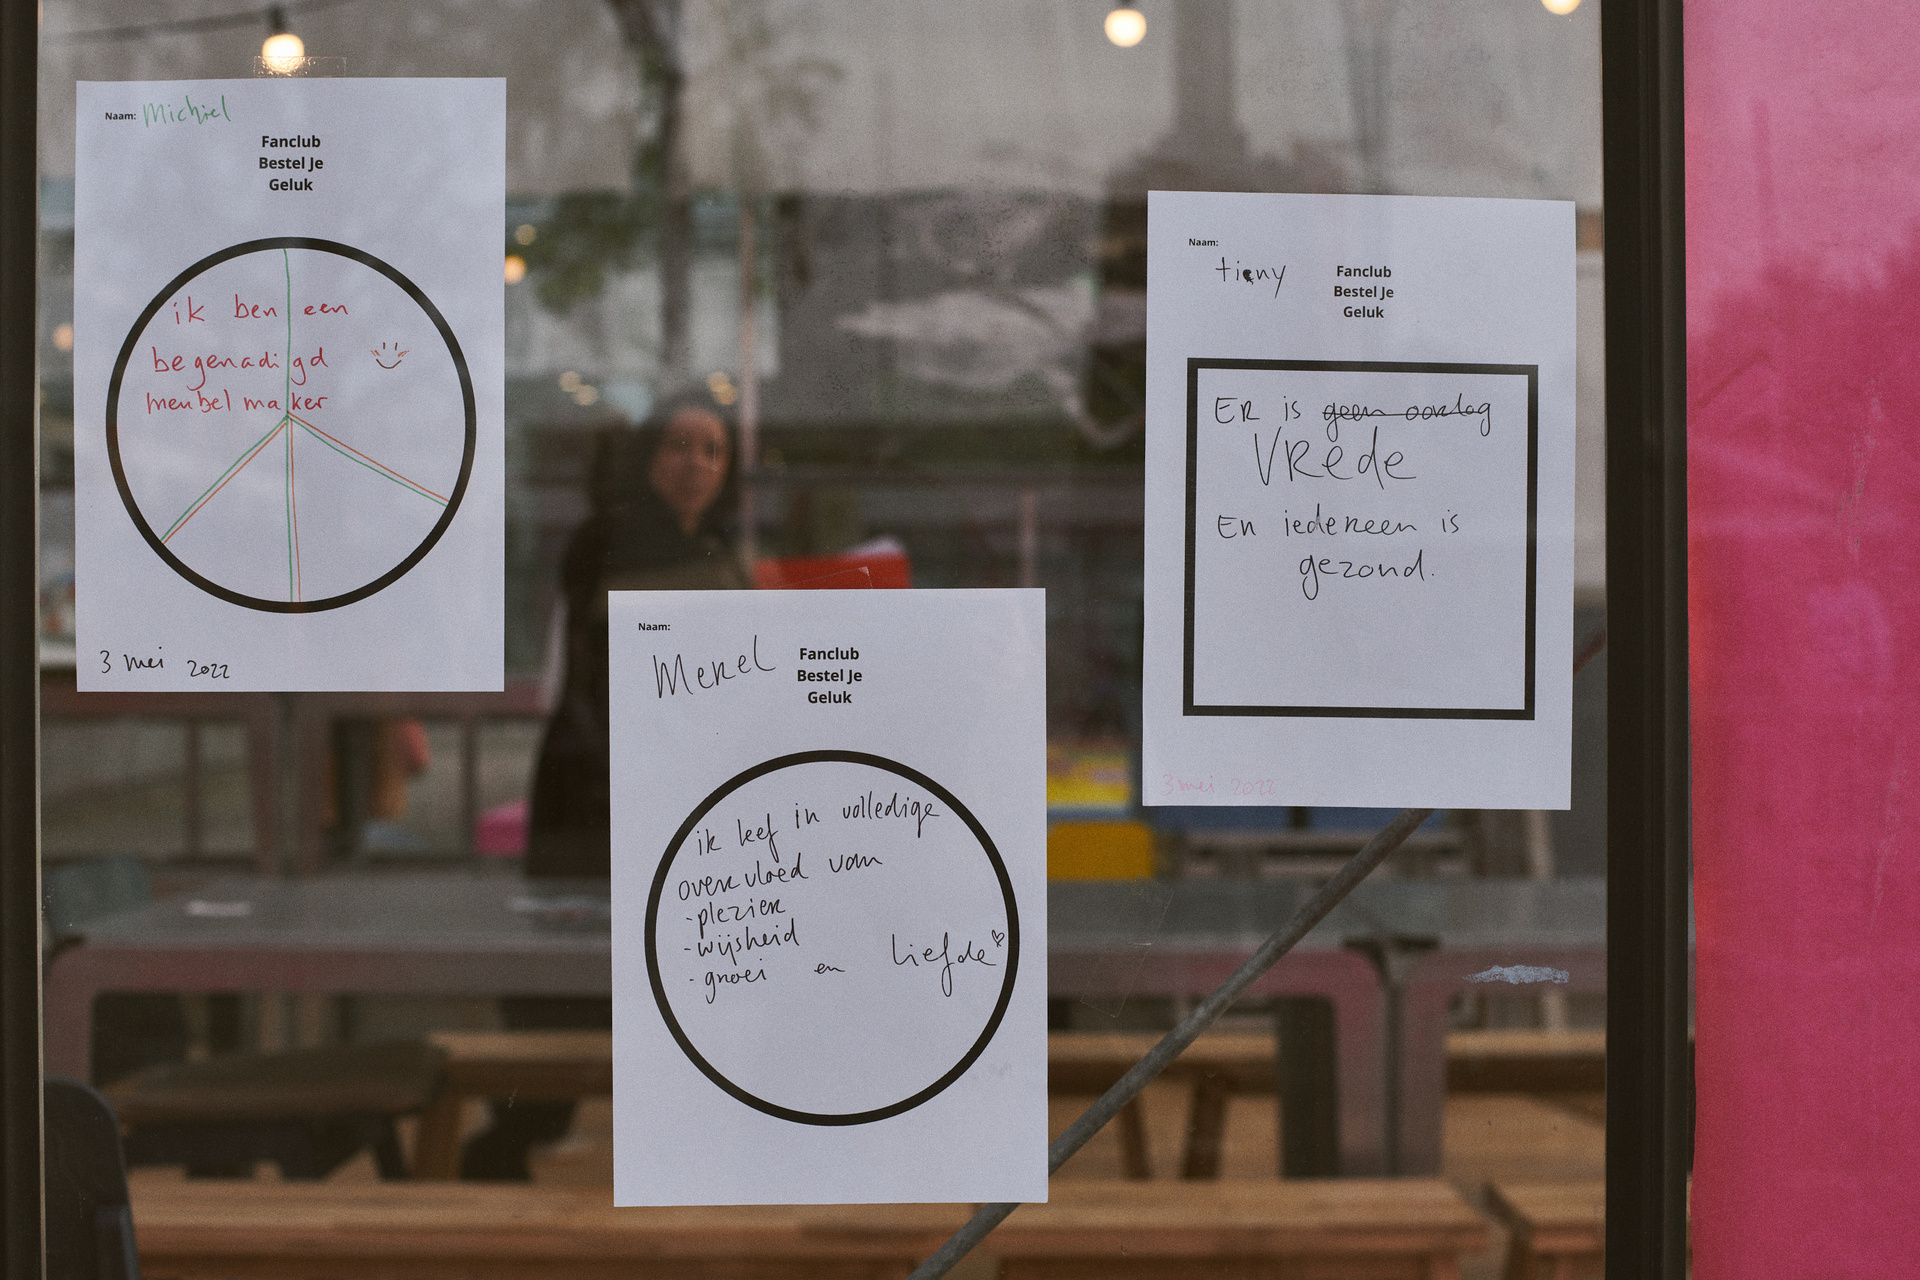 Naam: Michiel
Fanclub
Bestel Je
Geluk
ik ben een
begenadigd
meubel maker
3 mei 2022
Naam:
Merel
Fanclub
Bestel Je
Geluk
ik leef in volledige
overvloed van
- plezier
- wijsheid
- groei en liefde
Naam:
tieny
Fanclub
Bestel Je
Geluk
ER is geen oorlog
VRede
En iedereen is
gezond.
3 mei 2022